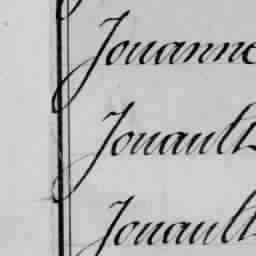 Jouanne
Jouault
Jouault